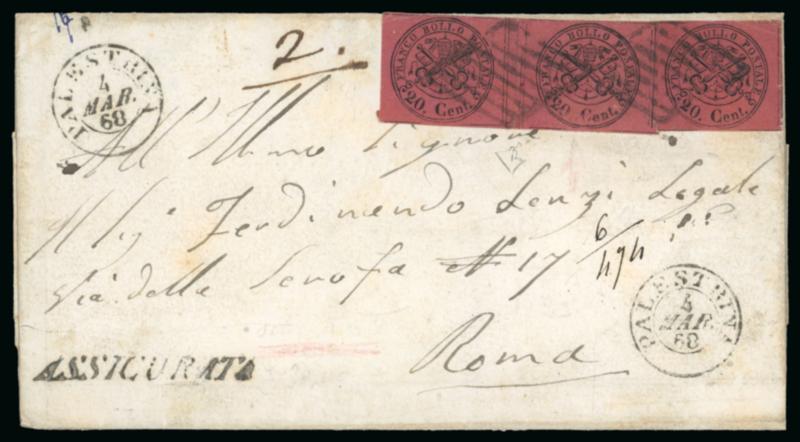 2.
PALESTRINA
4
MAR.
68
FRANCO BOLLO POSTALE
20. Cent.
FRANCO BOLLO POSTALE
20. Cent.
FRANCO BOLLO POSTALE
20. Cent.
All' Illmo Signore
Il Sigr Ferdinando Lenzi Legale
Via della Scrofa N 17
6
474
Roma
PALESTRINA
4
MAR.
68
ASSICURATA